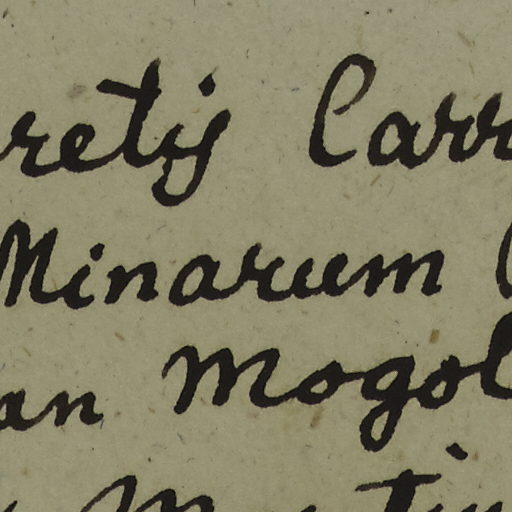 retij Carr
Minarum
an Mogol